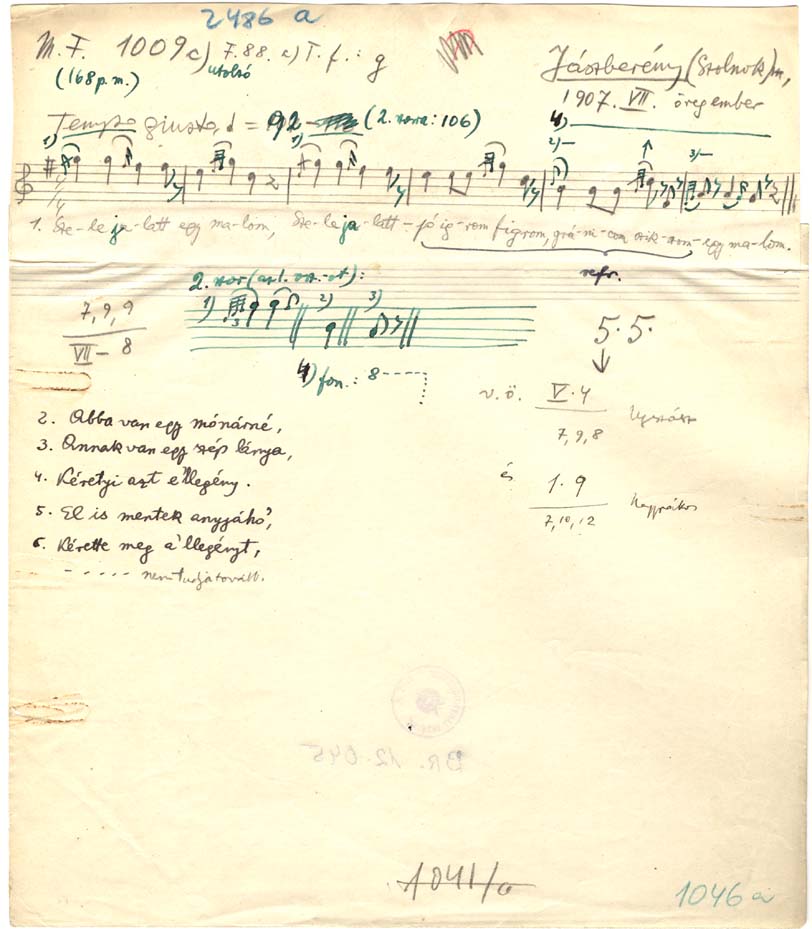 2486 a
M. F. 1009 c) F. 88. c) T. f.: g
(168 p. m.) utolsó
Jászberény (Szolnok) m,
1907. VII. öregember
Tempo giusto, = 92 (2. vers: 106)
4)
1) 1) 2) 3)
1. Sze-le ja-latt egy ma-lom, Sze-le ja-latt - jó ig-rom figrom, grá-ni-com szik-szom - egy ma-lom.
refr.
7, 9, 9
VII - 8
1) 2) 3)
3
4) fon.: 8
5. 5.
v. ö. V. 4
7, 9, 8
és 1. 9
7, 10, 12
2. Abba van egy mónárné,
3. Annak van egy szép lánya,
4. Kéretyi azt e'llegény.
5. El is mentek anyjáhó',
6. Kérette meg a'llegényt,
- - . . . . nem tudja tovább.
BR. 12.045
1041/a
1046 a